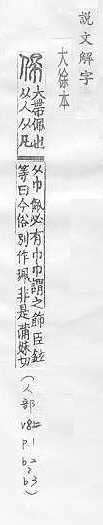 說文解字
大徐本
佩
大帶佩也
从人从凡
从巾佩必有巾巾謂之飾臣鉉
等曰今俗別作珮非是蒲妹切
(人部
v8上
p.1
b2
b3)